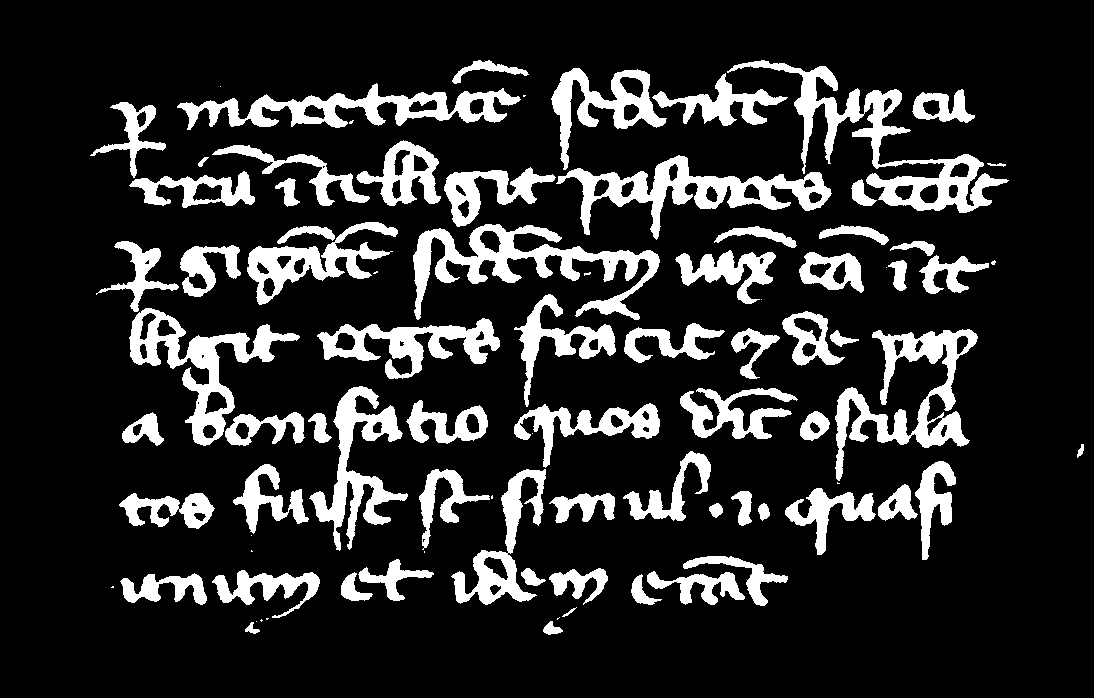 ꝑ meretricē sedentē suꝑ cu
rrū ītelligit pastores eccl̄ie
ꝑ gigātē sedētem iuxͣ eā īte
lligit reges frācie ⁊ de pap
a bonifatio quos dīc̄ oscula
tos fuisse se simul .i. quasi
unum et idem erāt